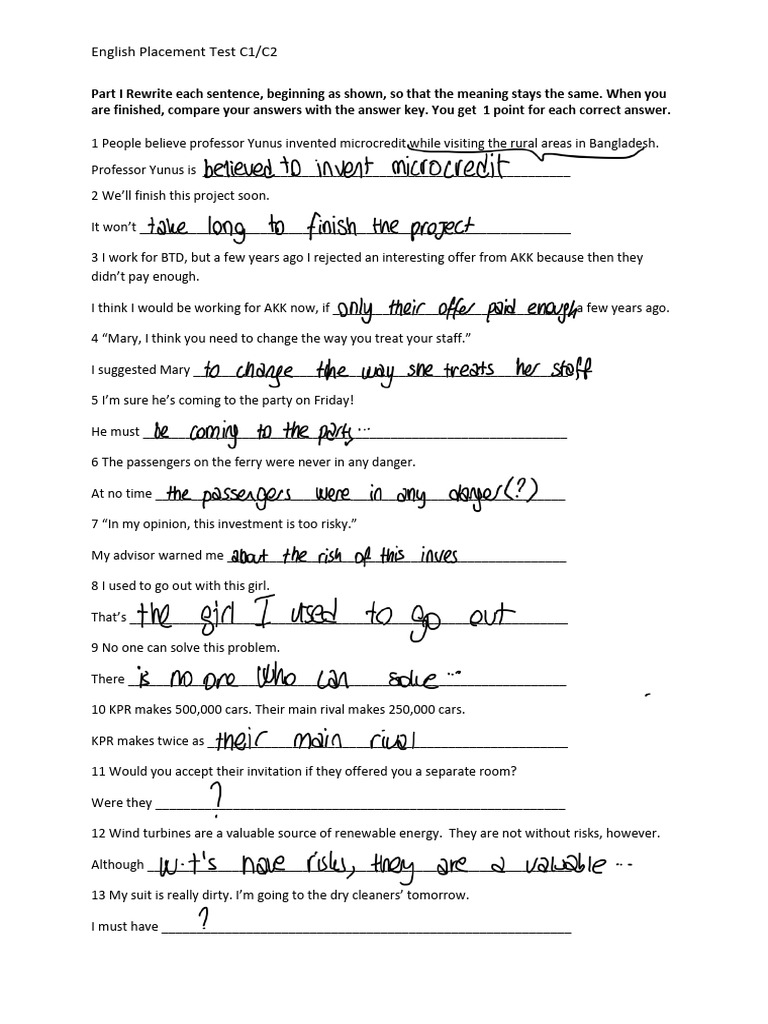 English Placement Test C1/C2
Part I Rewrite each sentence, beginning as shown, so that the meaning stays the same. When you
are finished, compare your answers with the answer key. You get 1 point for each correct answer.
1 People believe professor Yunus invented microcredit while visiting the rural areas in Bangladesh.
Professor Yunus is believed to invent microcredit
2 We'll finish this project soon.
It won't take long to finish the project
3 I work for BTD, but a few years ago I rejected an interesting offer from AKK because then they
didn't pay enough.
I think I would be working for AKK now, if only their offer paid enough a few years ago.
4 "Mary, I think you need to change the way you treat your staff."
I suggested Mary to change the way she treats her staff
5 I'm sure he's coming to the party on Friday!
He must be coming to the party...
6 The passengers on the ferry were never in any danger.
At no time the passengers were in any danger(?)
7 "In my opinion, this investment is too risky."
My advisor warned me about the risk of this inves
8 I used to go out with this girl.
That's the girl I used to go out
9 No one can solve this problem.
There is no one who can solve...
10 KPR makes 500,000 cars. Their main rival makes 250,000 cars.
KPR makes twice as their main rival
11 Would you accept their invitation if they offered you a separate room?
Were they ?
12 Wind turbines are a valuable source of renewable energy. They are not without risks, however.
Although w.t's have risks, they are a valuable...
13 My suit is really dirty. I'm going to the dry cleaners' tomorrow.
I must have ?